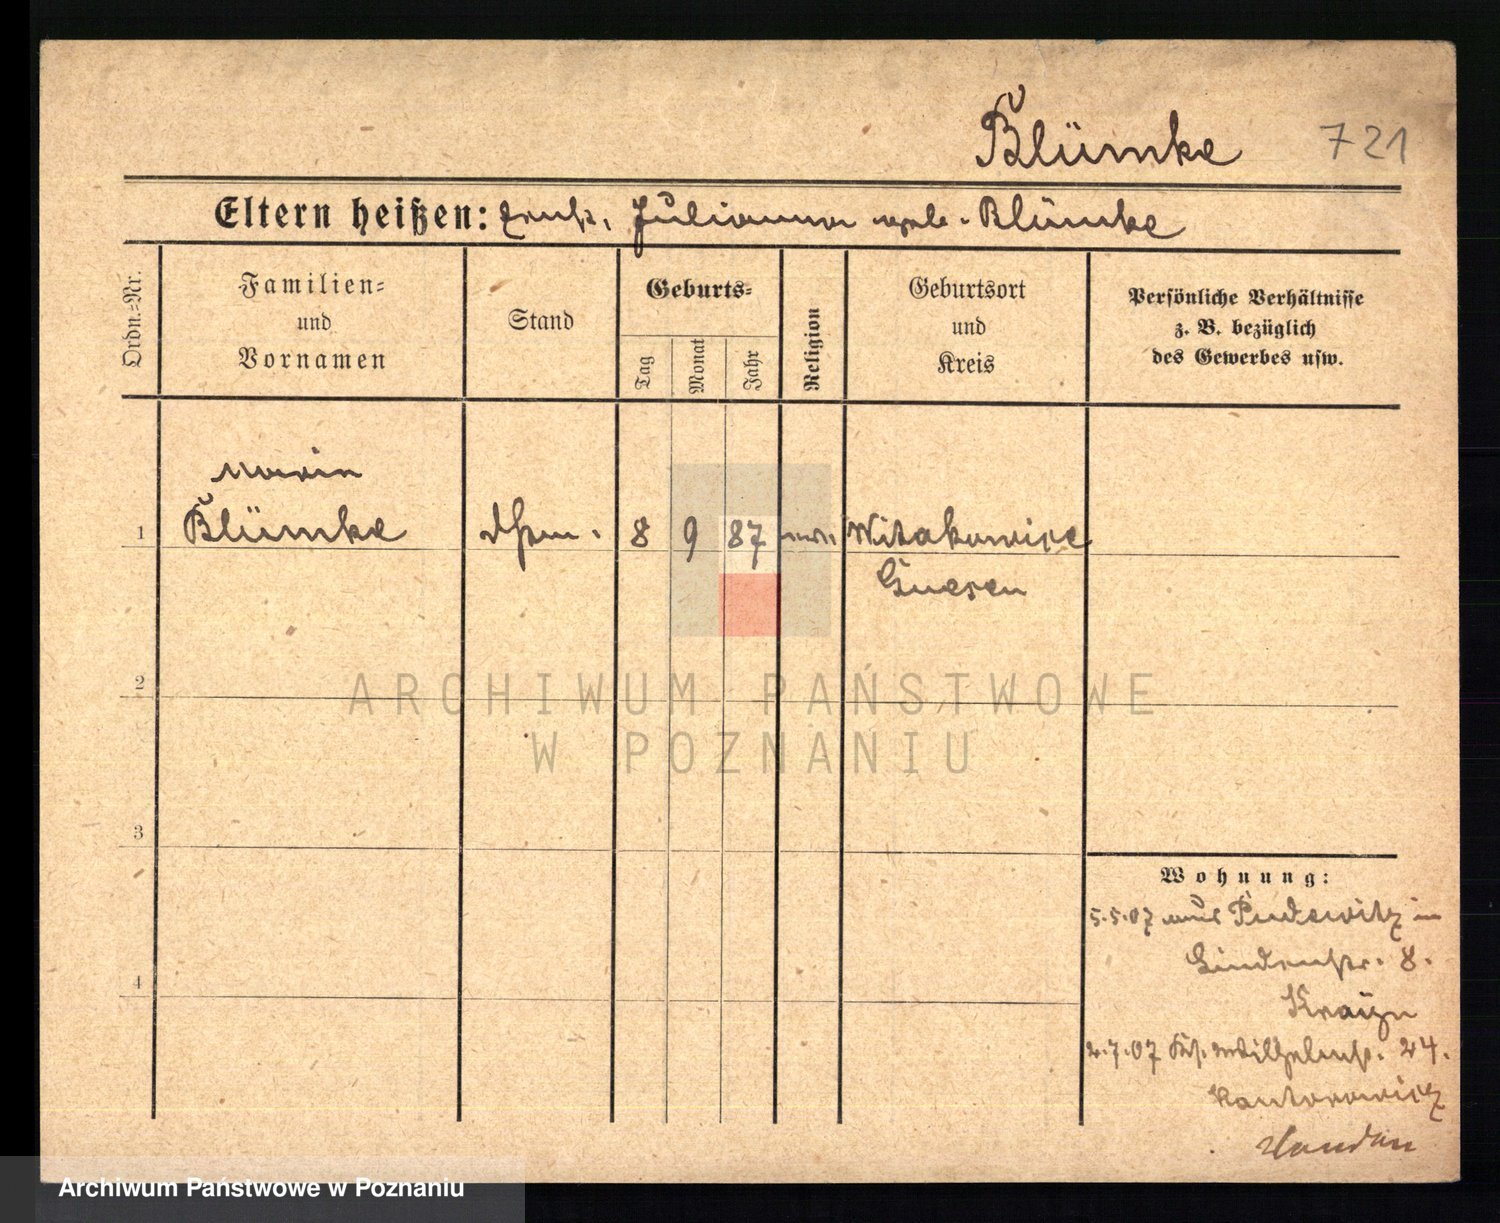 Blümke 721
Eltern heißen: Ernst, Julianna geb. Blümke
Ordn.=Nr.
Familien=
und
Vornamen
Stand
Geburts=
Tag
Monat
Jahr
Religion
Geburtsort
und
Kreis
Persönliche Verhältnisse
z. B. bezüglich
des Gewerbes usw.
Marie
1 Blümke 8 9 87 Witakowice
Gnesen
2
3
4
ARCHIWUM PAŃSTWOWE
W POZNANIU
Wohnung:
5.5.07 aus Pudewitz in
Lindenstr. 8.
2.7.07 Wilhelmst. 24.
Kantorowicz
Archiwum Państwowe w Poznaniu